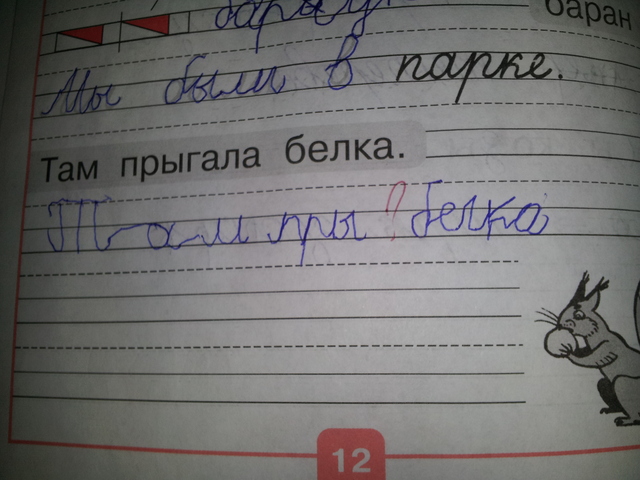 баран
Мы были в парке.
Там прыгала белка.
Там пры ? белка
12